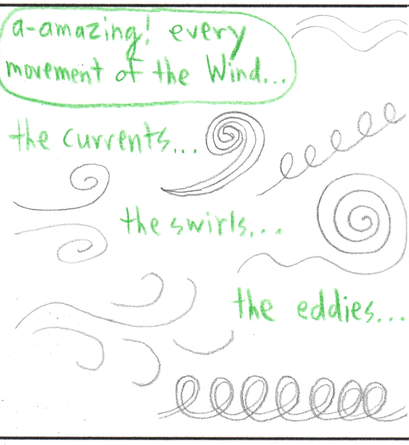 a-amazing! every
movement of the Wind...
the currents...
the swirls...
the eddies...